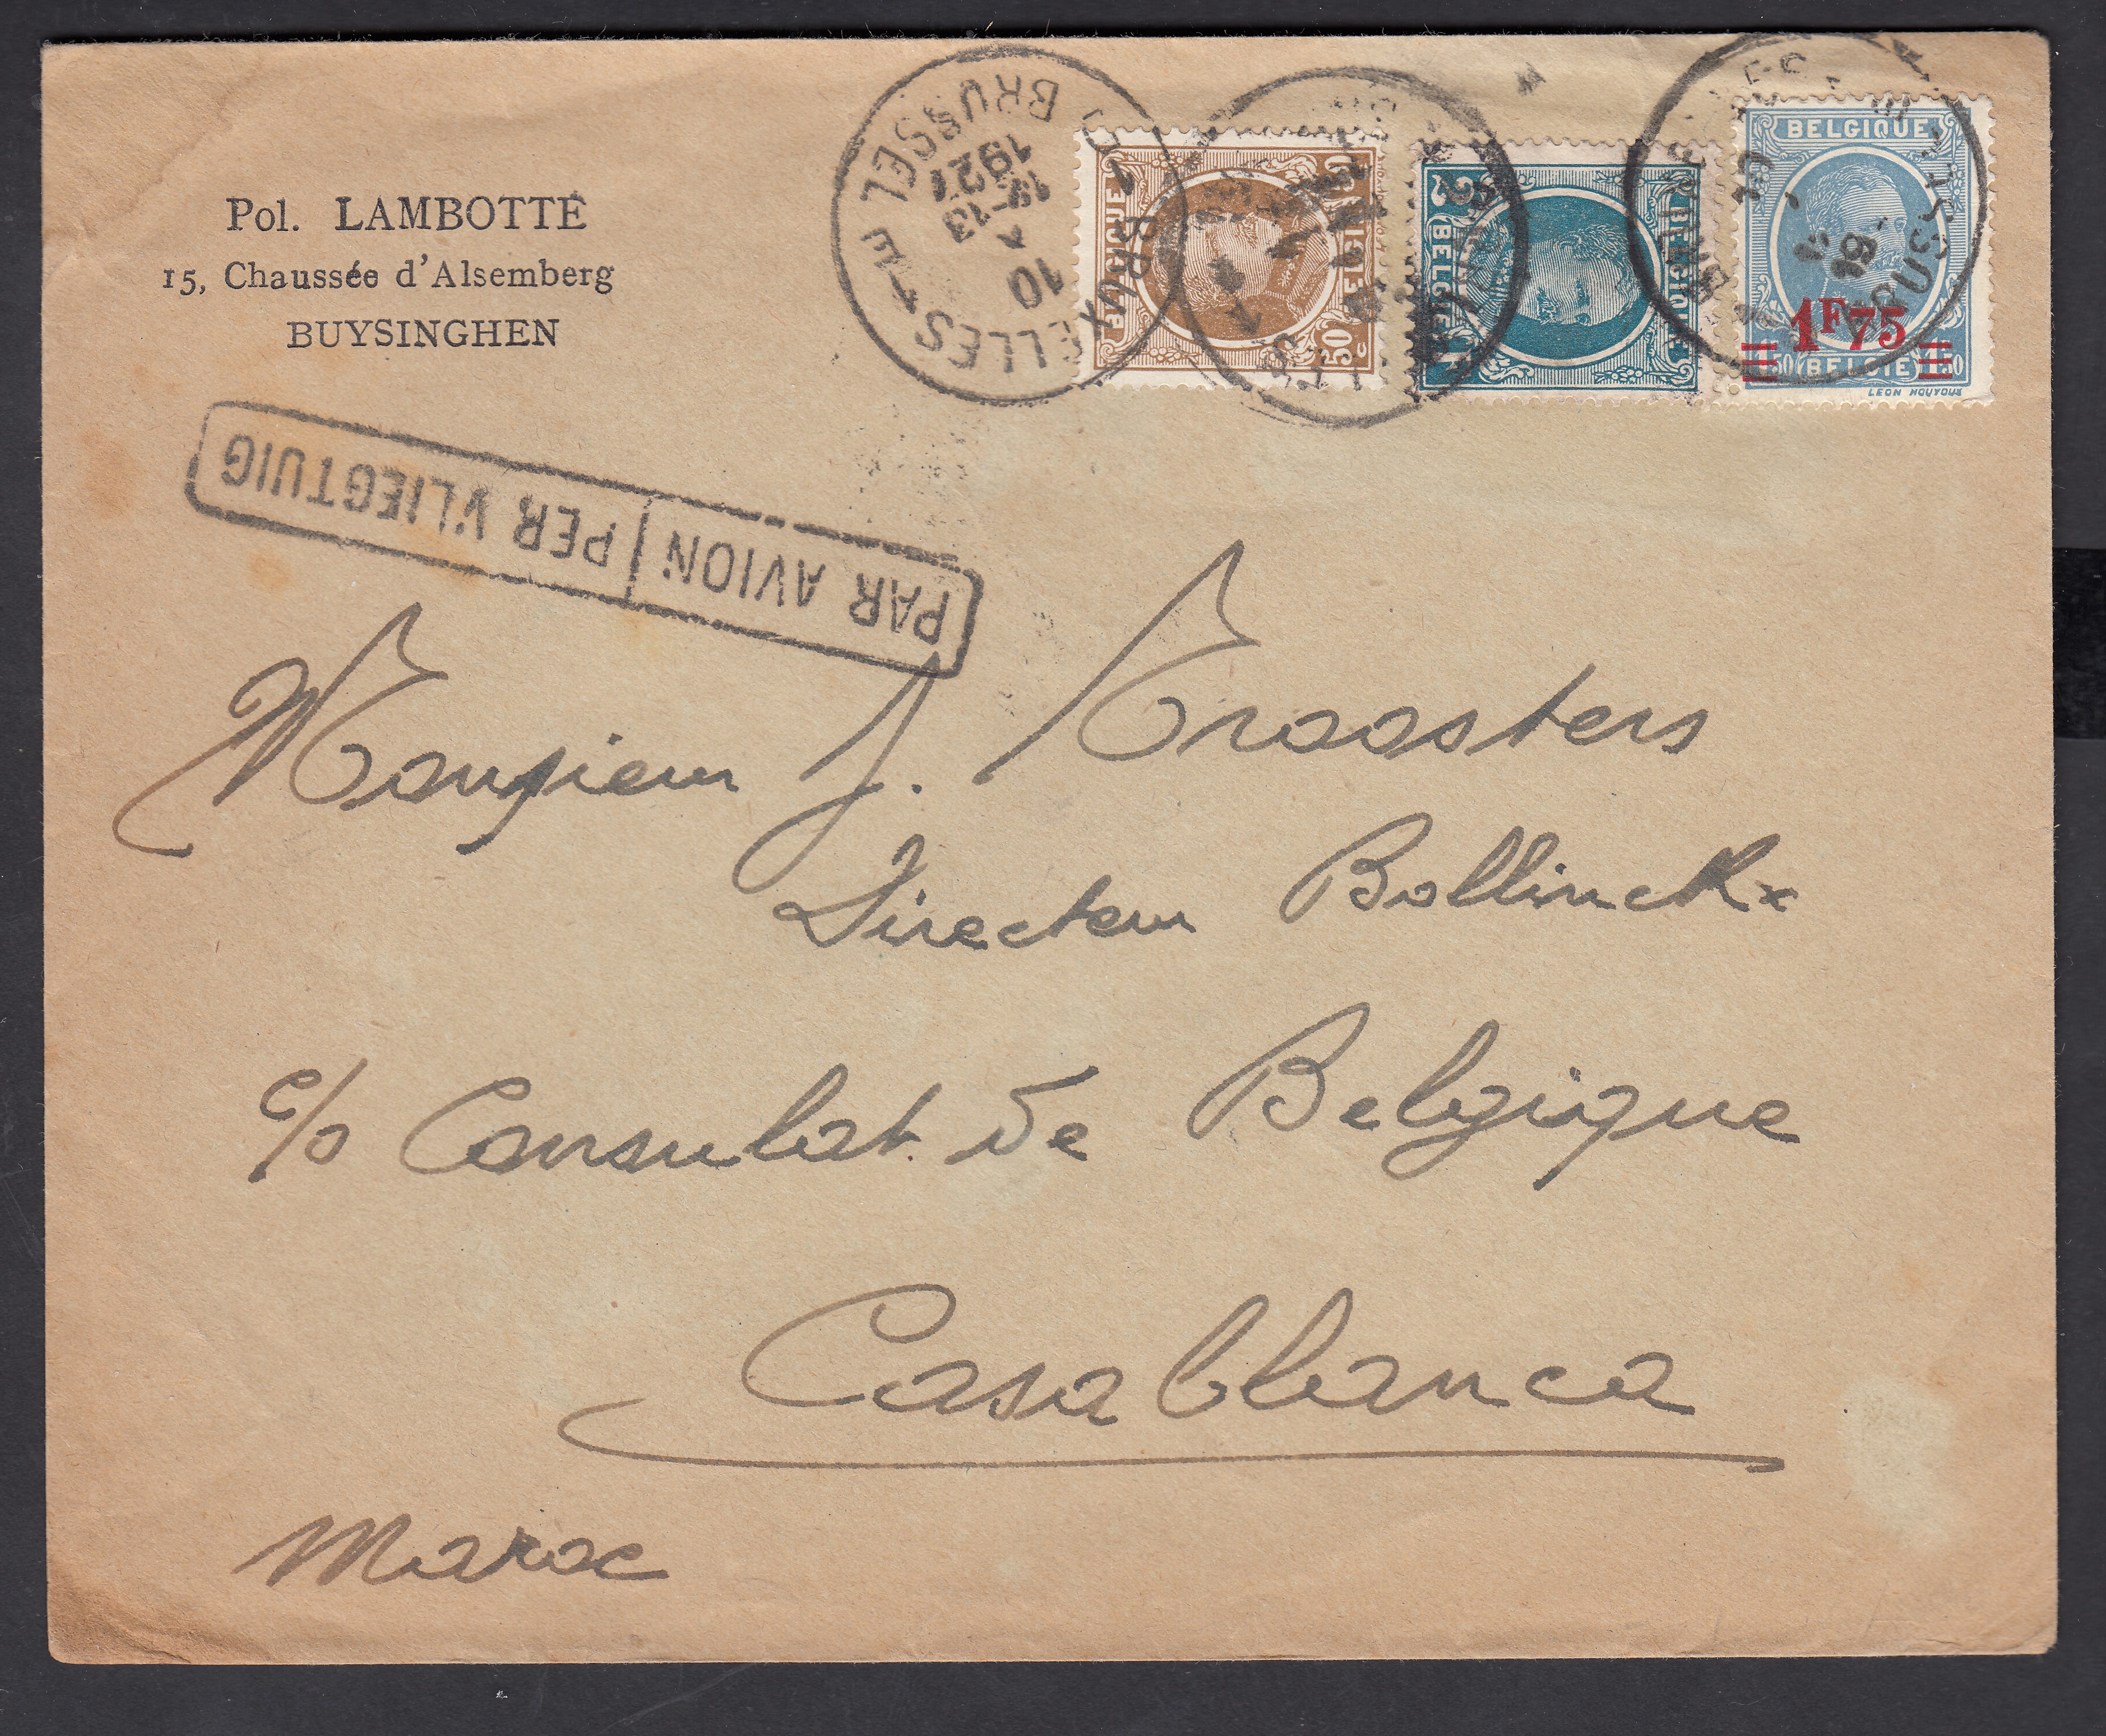 Pol. LAMBOTTE
15, Chaussée d'Alsemberg
BUYSINGHEN
BRUXELLES
BRUSSEL
10
12-13
1927
BELGIQUE
50
C
BELGIE
2
BELGIQUE
BELGIE
BELGIQUE
1F75
1.50 BELGIË 1.50
LEON HOUYOUX
PAR AVION PER VLIEGTUIG
Monsieur J. Troosters
Directeur Bollinckx
c/o Consulat de Belgique
Casablanca
Maroc